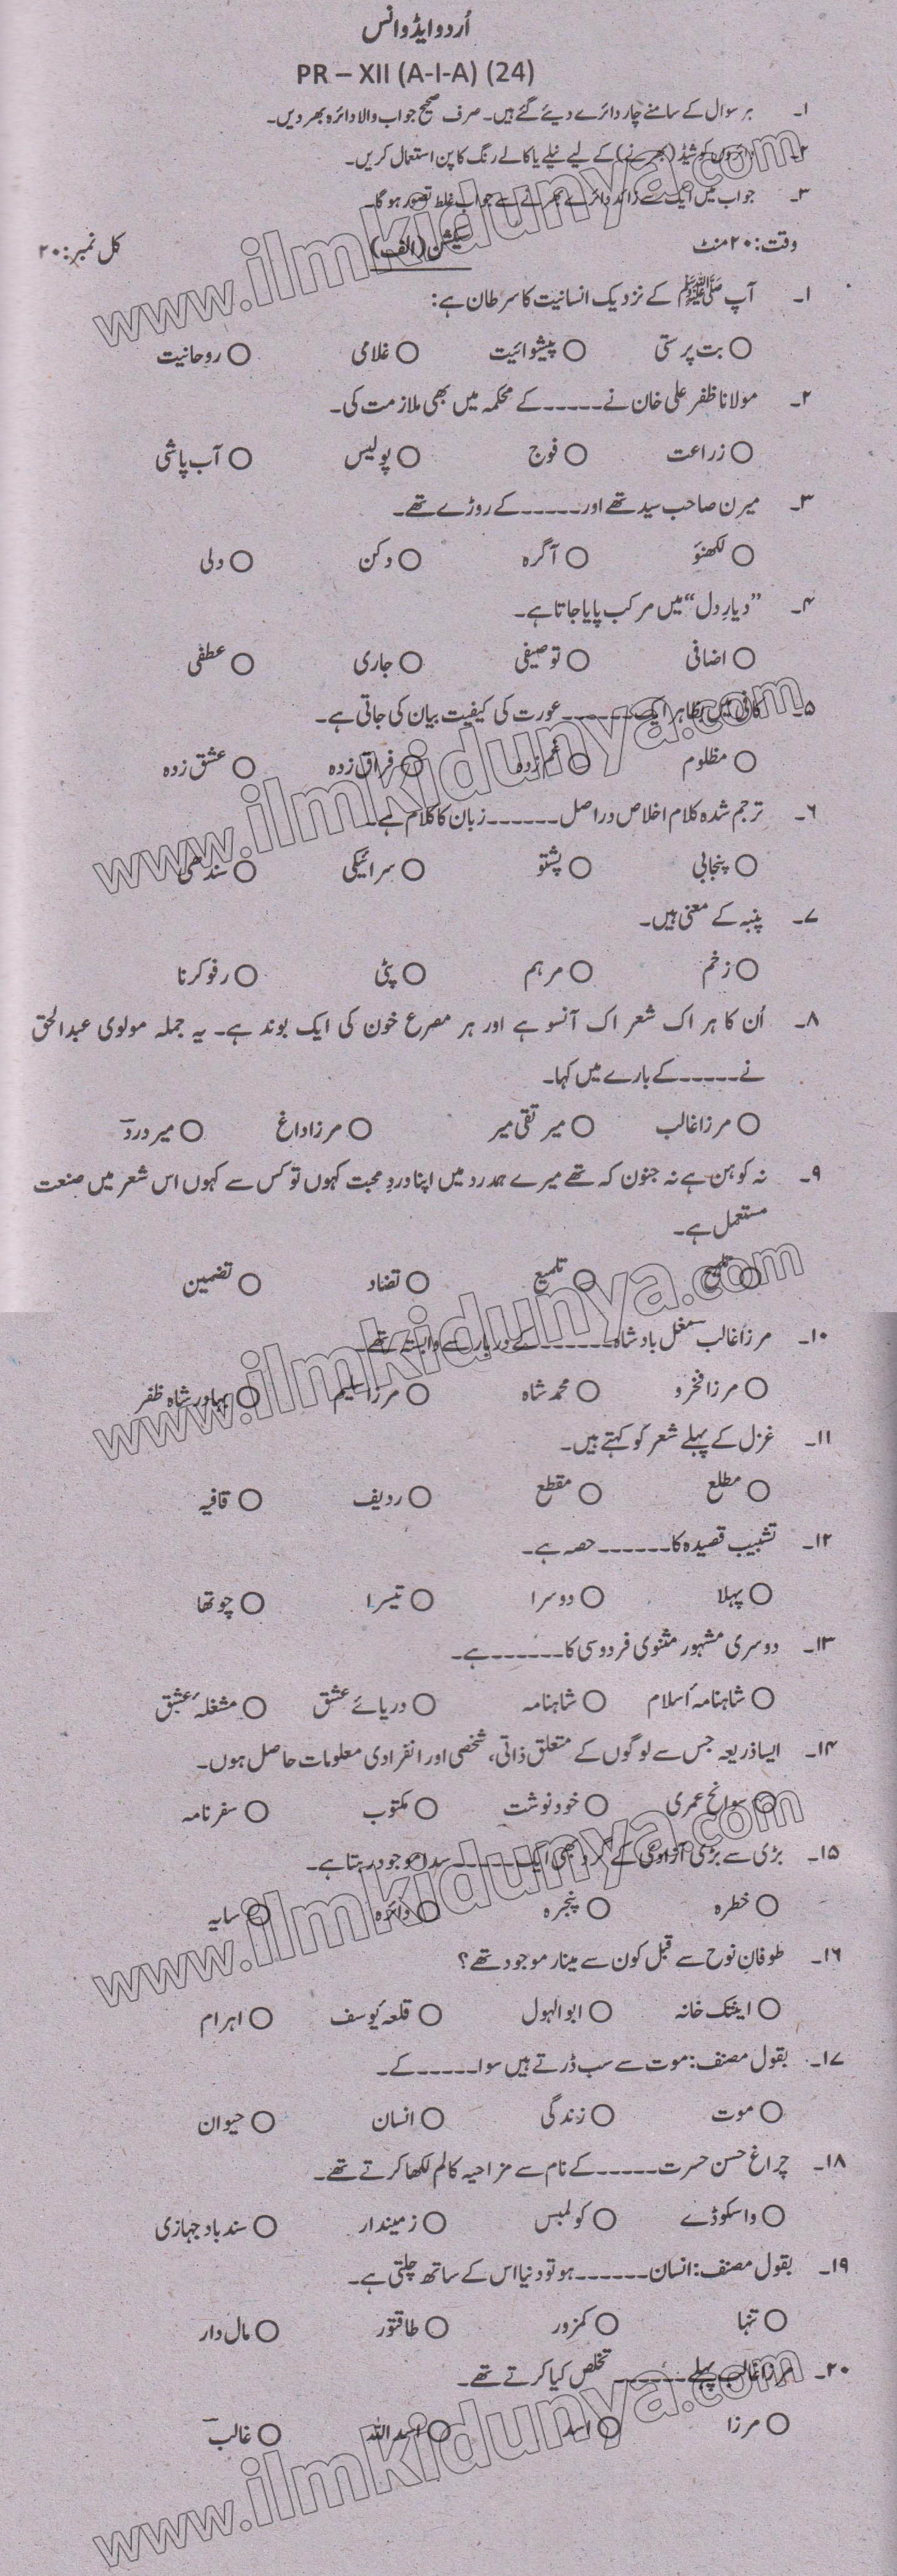 اُردو ایڈوانس
PR – XII (A-I-A) (24)
۱۔ ہر سوال کے سامنے چار دائرے دیئے گئے ہیں۔ صرف صحیح جواب والا دائرہ بھر دیں۔
۲۔ دائروں کو شیڈ (بھرنے) کے لیے نیلے یا کالے رنگ کا پن استعمال کریں۔
۳۔ جواب میں ایک سے زائد دائرے بھرنے سے جواب غلط تصور ہو گا۔
وقت: ۲۰ منٹ سیکشن (الف) کل نمبر: ۲۰
۱۔ آپ ﷺ کے نزدیک انسانیت کا سرطان ہے:
○ بت پرستی ○ پیشوائیت ○ غلامی ○ روحانیت
۲۔ مولانا ظفر علی خان نے ----- کے محکمہ میں بھی ملازمت کی۔
○ زراعت ○ فوج ○ پولیس ○ آب پاشی
۳۔ میرن صاحب سید تھے اور ----- کے روڑے تھے۔
○ لکھنؤ ○ آگرہ ○ دکن ○ دلی
۴۔ ”دیارِ دل“ میں مرکب پایا جاتا ہے۔
○ اضافی ○ توصیفی ○ جاری ○ عطفی
۵۔ کافی میں بظاہر ایک ------ عورت کی کیفیت بیان کی جاتی ہے۔
○ مظلوم ○ غم زدہ ○ فراق زدہ ○ عشق زدہ
۶۔ ترجم شدہ کلام اخلاص دراصل ------ زبان کا کلام ہے۔
○ پنجابی ○ پشتو ○ سرائیکی ○ سندھی
۷۔ پنبہ کے معنی ہیں۔
○ زخم ○ مرہم ○ پٹی ○ رفو کرنا
۸۔ اُن کا ہر اک شعر اک آنسو ہے اور ہر مصرع خون کی ایک بوند ہے۔ یہ جملہ مولوی عبدالحق
نے ----- کے بارے میں کہا۔
○ مرزا غالب ○ میر تقی میر ○ مرزا داغ ○ میر دردؔ
۹۔ نہ کوہن ہے نہ جنون کہ تھے میرے ہمدرد میں اپنا دردِ محبت کہوں تو کس سے کہوں اس شعر میں صنعت
مستعمل ہے۔
○ تلمیح ○ تلمیع ○ تضاد ○ تضمین
۱۰۔ مرزا غالب مغل بادشاہ ------ کے دربار سے وابستہ تھے۔
○ مرزا فخرو ○ محمد شاہ ○ مرزا سلیم ○ بہادر شاہ ظفر
۱۱۔ غزل کے پہلے شعر کو کہتے ہیں۔
○ مطلع ○ مقطع ○ ردیف ○ قافیہ
۱۲۔ تشبیب قصیدہ کا ------ حصہ ہے۔
○ پہلا ○ دوسرا ○ تیسرا ○ چوتھا
۱۳۔ دوسری مشہور مثنوی فردوسی کا ------ ہے۔
○ شاہنامہ اُسلام ○ شاہنامہ ○ دریائے عشق ○ مشغلہ عشق
۱۴۔ ایسا ذریعہ جس سے لوگوں کے متعلق ذاتی، شخصی اور انفرادی معلومات حاصل ہوں۔
○ سوانح عمری ○ خود نوشت ○ مکتوب ○ سفر نامہ
۱۵۔ بڑی سے بڑی آزادی کے گرد بھی ایک ------ سدا موجود رہتا ہے۔
○ خطرہ ○ پنجرہ ○ دائرہ ○ سایہ
۱۶۔ طوفانِ نوح سے قبل کون سے مینار موجود تھے؟
○ اینٹک خانہ ○ ابوالہول ○ قلعہ یُوسف ○ اہرام
۱۷۔ بقول مصنف: موت سے سب ڈرتے ہیں سوا ----- کے۔
○ موت ○ زندگی ○ انسان ○ حیوان
۱۸۔ چراغ حسن حسرت ----- کے نام سے مزاحیہ کالم لکھا کرتے تھے۔
○ واسکوڈے ○ کولمبس ○ زمیندار ○ سندباد جہازی
۱۹۔ بقول مصنف: انسان ------ ہو تو دنیا اس کے ساتھ چلتی ہے۔
○ تنہا ○ کمزور ○ طاقتور ○ مال دار
۲۰۔ مرزا غالب پہلے ------ تخلص کیا کرتے تھے۔
○ مرزا ○ اسد ○ اسد اللہ ○ غالبؔ
www.ilmkidunya.com
www.ilmkidunya.com
www.ilmkidunya.com
www.ilmkidunya.com
www.ilmkidunya.com